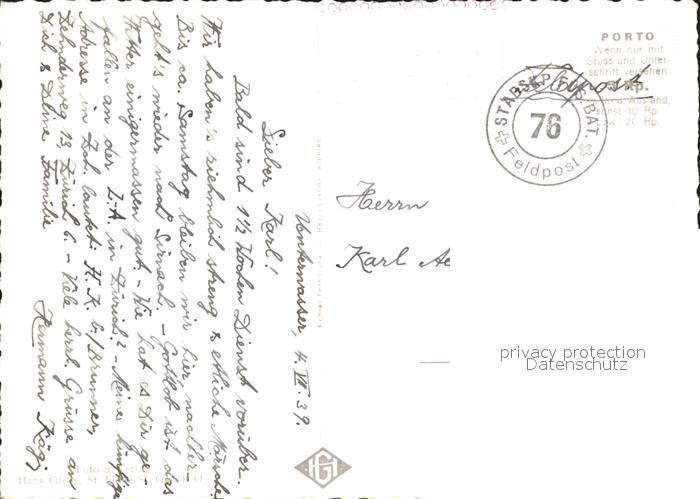 Unterwasser, 4. VII. 39.
Lieber Karl!
Bald sind 1½ Wochen Dienst vorüber.
Wir haben's ziehmlich streng & etliche Märsche.
Bis ca. Samstag bleiben wir hier, nachher
geht's wieder nach Sirnach. - Gottlob ist das
Wetter einigermassen gut. - Wie hat es Dir ge-
fallen an der L.A. in Zürich? - Meine künftige
Adresse in Zch. lautet: H. K. b/Brunner,
Zehnderweg 13 Zürich 6. - Viele herzl. Grüsse an
Dich & Deine Familie
Hermann Kägi
PORTO
Wenn nur mit
Gruss und Unter-
schrift versehen
5 Rp.
Ausland,
sonst 10 Rp.
20 Rp.
Feldpost
STABSKP. FÜS. BAT.
76
Feldpost
Herrn
Karl
privacy protection
Datenschutz
HG
Foto u. Verlag
Hans Gross, St. Gallen